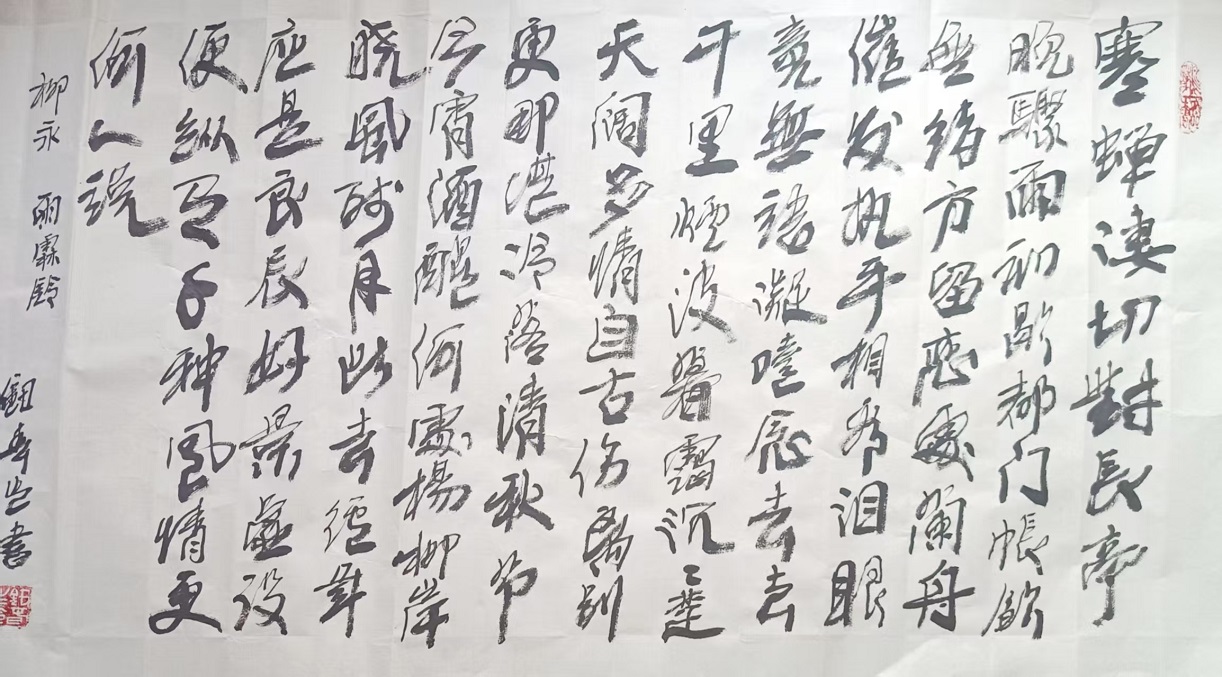 寒蝉凄切對長亭
晚驟雨初歇都门帳飲
無緒方留恋處蘭舟
催发执手相看泪眼
竟無語凝噎念去去
千里煙波暮靄沉〻楚
天阔多情自古伤離别
更那堪冷落清秋节
今宵酒醒何處楊柳岸
晓風残月此去經年
应是良辰好景虚设
便纵有千种風情更
何人説
柳永 雨霖鈴
書